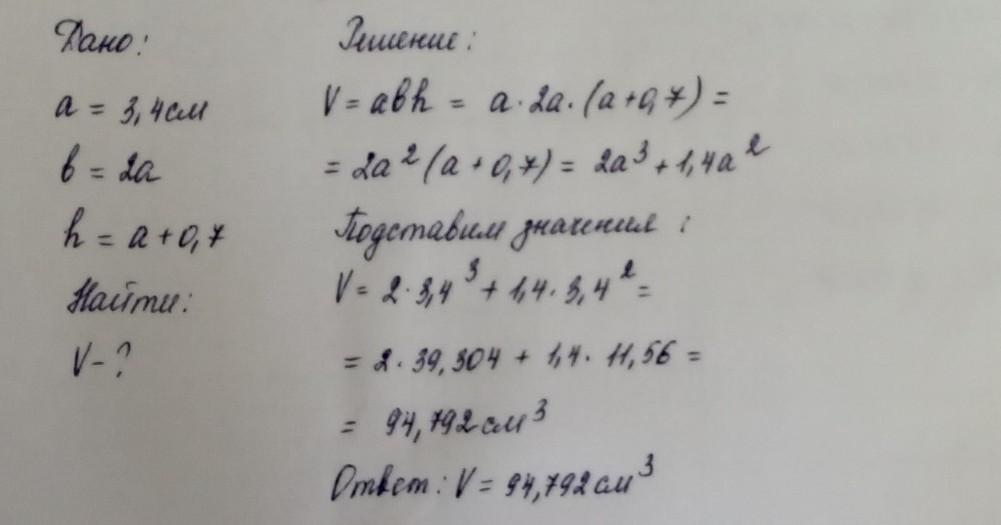 Дано:
a = 3,4см
b = 2a
h = a + 0,7
Найти:
V - ?
Решение:
V = abh = a · 2a · (a + 0,7) =
= 2a² (a + 0,7) = 2a³ + 1,4a²
Подставим значения :
V = 2 · 3,4³ + 1,4 · 3,4² =
= 2 · 39,304 + 1,4 · 11,56 =
= 94,792 см³
Ответ: V = 94,792 см³